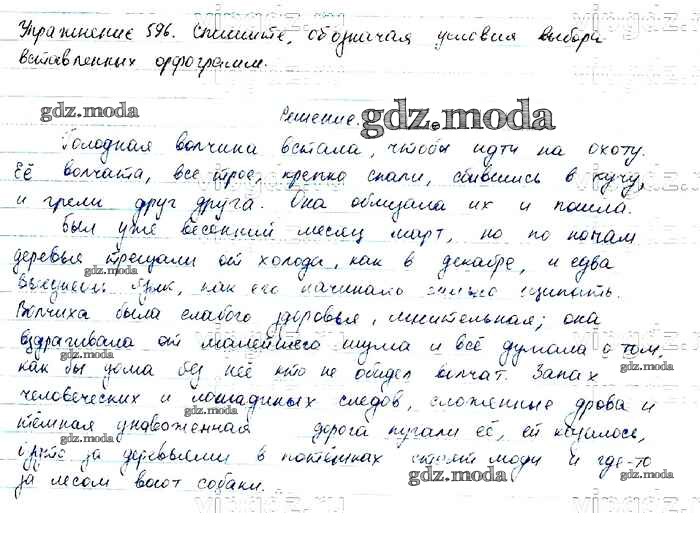 Упражнение 596. Спишите, обозначая условия выбора
вставленных орфограмм.
gdz.moda
Решение.
gdz.moda
Голодная волчиха встала, чтобы идти на охоту.
Её волчата, все трое, крепко спали, сбившись в кучу,
и грели друг друга. Она облизала их и пошла.
Был уже весенний месяц март, но по ночам
деревья трещали от холода, как в декабре, и едва
gdz.moda
высунешь язык, как его начинало сильно щипать.
Волчиха была слабого здоровья, мнительная; она
вздрагивала от малейшего шума и всё думала о том,
gdz.moda
как бы дома без неё кто не обидел волчат. Запах
человеческих и лошадиных следов, сложенные дрова и
gdz.moda
тёмная унавоженная дорога пугали её, ей казалось,
gdz.moda
за деревьями в потёмках стоят люди и где-то
gdz.moda
за лесом воют собаки.